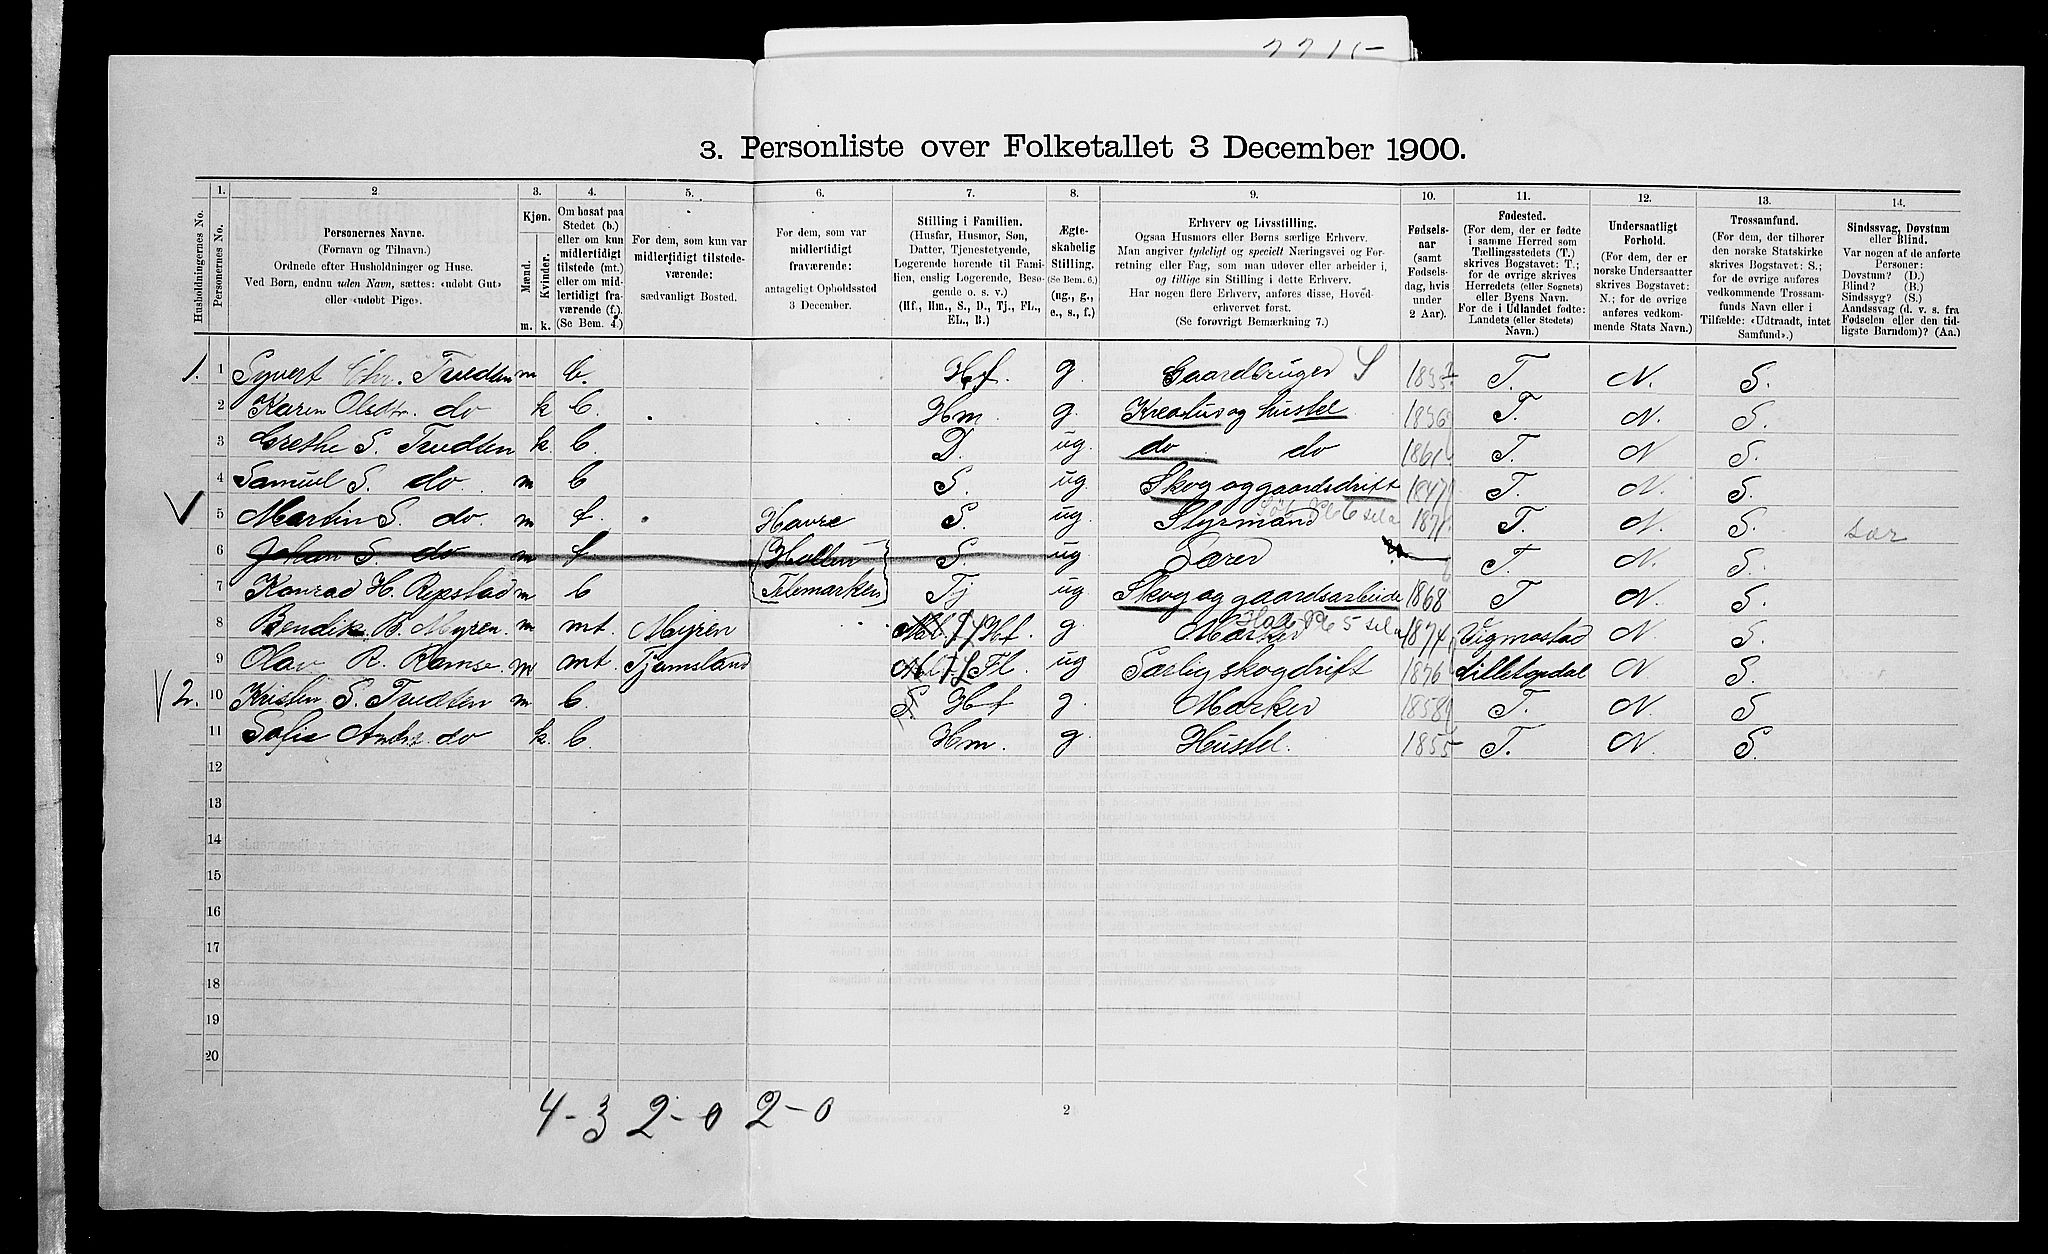 3. Personliste over Folketallet 3 December 1900.
Husholdningernes No.
1. Personernes No.
2. Personernes Navne. (Fornavn og Tilnavn.) Ordnede efter Husholdninger og Huse. Ved Børn, endnu uden Navn, sættes: «udøbt Gut» eller «udøbt Pige».
3. Kjøn. Mænd. m. Kvinder. k.
4. Om bosat paa Stedet (b.) eller om kun midlertidigt tilstede (mt.) eller om midlertidigt fraværende (f.). (Se Bem. 4.)
5. For dem, som kun var midlertidigt tilstedeværende: sædvanligt Bosted.
6. For dem, som var midlertidigt fraværende: antageligt Opholdssted 3 December.
7. Stilling i Familien. (Husfar, Husmor, Søn, Datter, Tjenestetyende, Logerende hørende til Familien, enslig Logerende, Besøgende o. s. v.) (Hf., Hm., S., D., Tj., FL., EL., B.)
8. Ægteskabelig Stilling. (Se Bem. 6.) (ug., g., e., s., f.)
9. Erhverv og Livsstilling. Ogsaa Husmors eller Børns særlige Erhverv. Man angiver tydeligt og specielt Næringsvei og Forretning eller Fag, som man udøver eller arbeider i, og tillige sin Stilling i dette Erhverv. Har nogen flere Erhverv, anføres disse, Hovederhvervet først. (Se forøvrigt Bemærkning 7.)
10. Fødselsaar (samt Fødselsdag, hvis under 2 Aar).
11. Fødested. (For dem, der er fødte i samme Herred som Tællingsstedets (T.) skrives Bogstavet: T.; for de øvrige skrives Herredets (eller Sognets) eller Byens Navn. For de i Udlandet fødte: Landets (eller Stedets) Navn.)
12. Undersaatligt Forhold. (For dem, der er norske Undersaatter skrives Bogstavet: N.; for de øvrige anføres vedkommende Stats Navn.)
13. Trossamfund. (For dem, der tilhører den norske Statskirke skrives Bogstavet: S.; for de øvrige anføres vedkommende Trossamfunds Navn eller i Tilfælde: «Udtraadt, intet Samfund».)
14. Sindssvag, Døvstum eller Blind. Var nogen af de anførte Personer: Døvstum? (D.) Blind? (B.) Sindssyg? (S.) Aandssvag (d. v. s. fra Fødselen eller den tidligste Barndom)? (Aa.)
1. 1 Syvert Chr. Tredten m b. Hf. g. Gaardbruger S T. N. S.
2 Karen Olsdtr. do k b. Hm g. Kreatur og hustel 1836 T. N. S.
3 Grethe S. Tredten k. b. D. ug. do do 1861 T. N S.
4 Samuel S. do m b S. ug. Skog og gaardsdrift T. N. S.
5 Martin S. do. m f. Havre S. ug. Styrmand 1871 T. N S.
6 Johan S. do m f Hollen S. ug Lærer T. N. S.
7 Konrad H. Repstad m b Telemarken Tj ug Skog og gaardsarbeide 1868 T N. S.
8 Bendik B. Myren. m mt. Myren Hf. g. Marker 1874 Vigmostad N S.
9 Olav R. Ramse m mt. Tjomsland FL. ug Særlig skogdrift 1876 N. S.
2. 10 Kristen S. Tredten m b. S. Hf g. Marker 1858 T. N. S
11 Sofie Andrs. do k. b. Hm. g. Hustel. 1855 T. N. S.
12
13
14
15
16
17
18
19
20
4-3 2-0 2-0
2